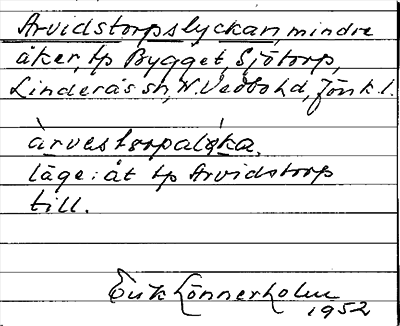 Arvidstorpslyckan, mindre
åker, tp Bygget, Sjötorp,
Linderås sn, N. Vedbo hd, Jönk. l.
àrvestorpalýka,
läge: åt tp Arvidstorp
till.
Erik Lönnerholm
1952